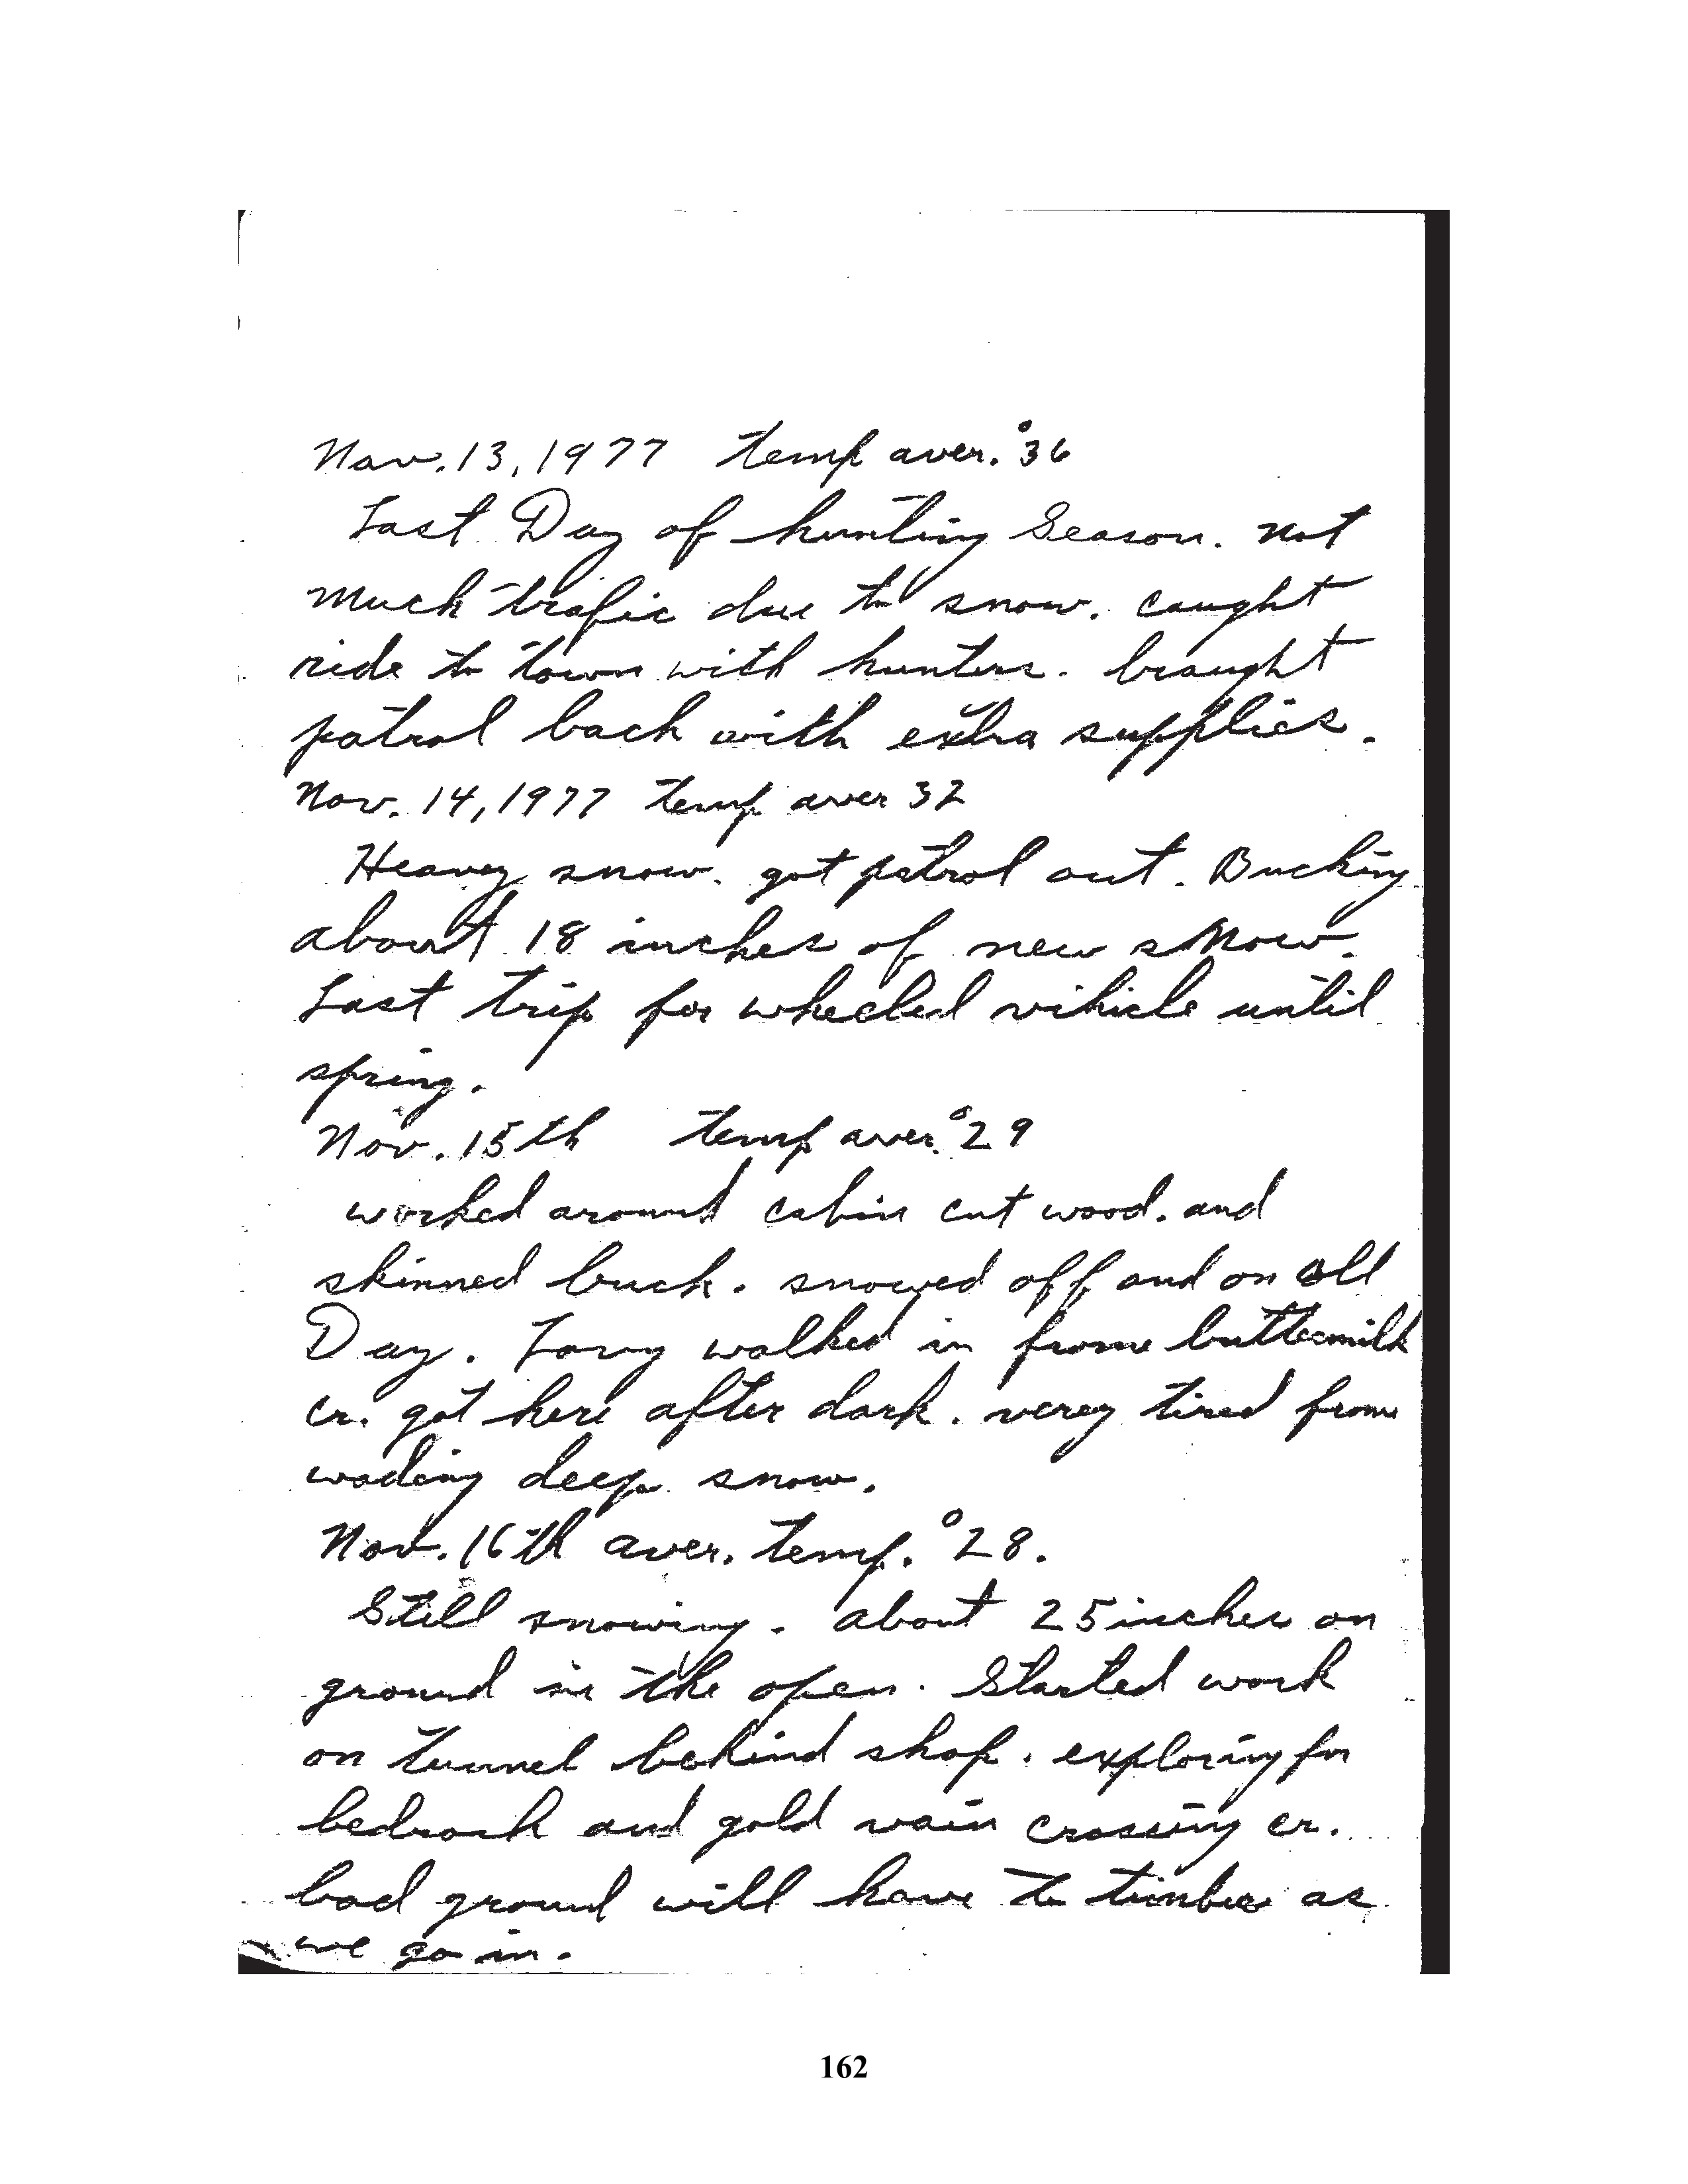 Nov. 13, 1977 temp aver. °36
Last Day of hunting Season. not
much trafic due to snow. caught
ride to town with hunters. braught
patrol back with extra supplies.
Nov. 14, 1977 temp aver 32
Heavey snow. got patrol out. Bucking
about 18 inches of new snow.
Last trip for wheeled vihicle until
spring.
Nov. 15th temp aver. °29
worked around cabin cut wood. and
skinned buck. snowed off and on all
Day. walked in from buttermilk
cr. got here after dark. verey tired from
wading deep snow.
Nov. 16th aver. temp. °28.
Still snowing. about 25 inches on
ground in the open. Started work
on tunnel behind shop. exploring for
bedrock and gold vain crossing cr.
bad ground will have to timber as
we go in.
162